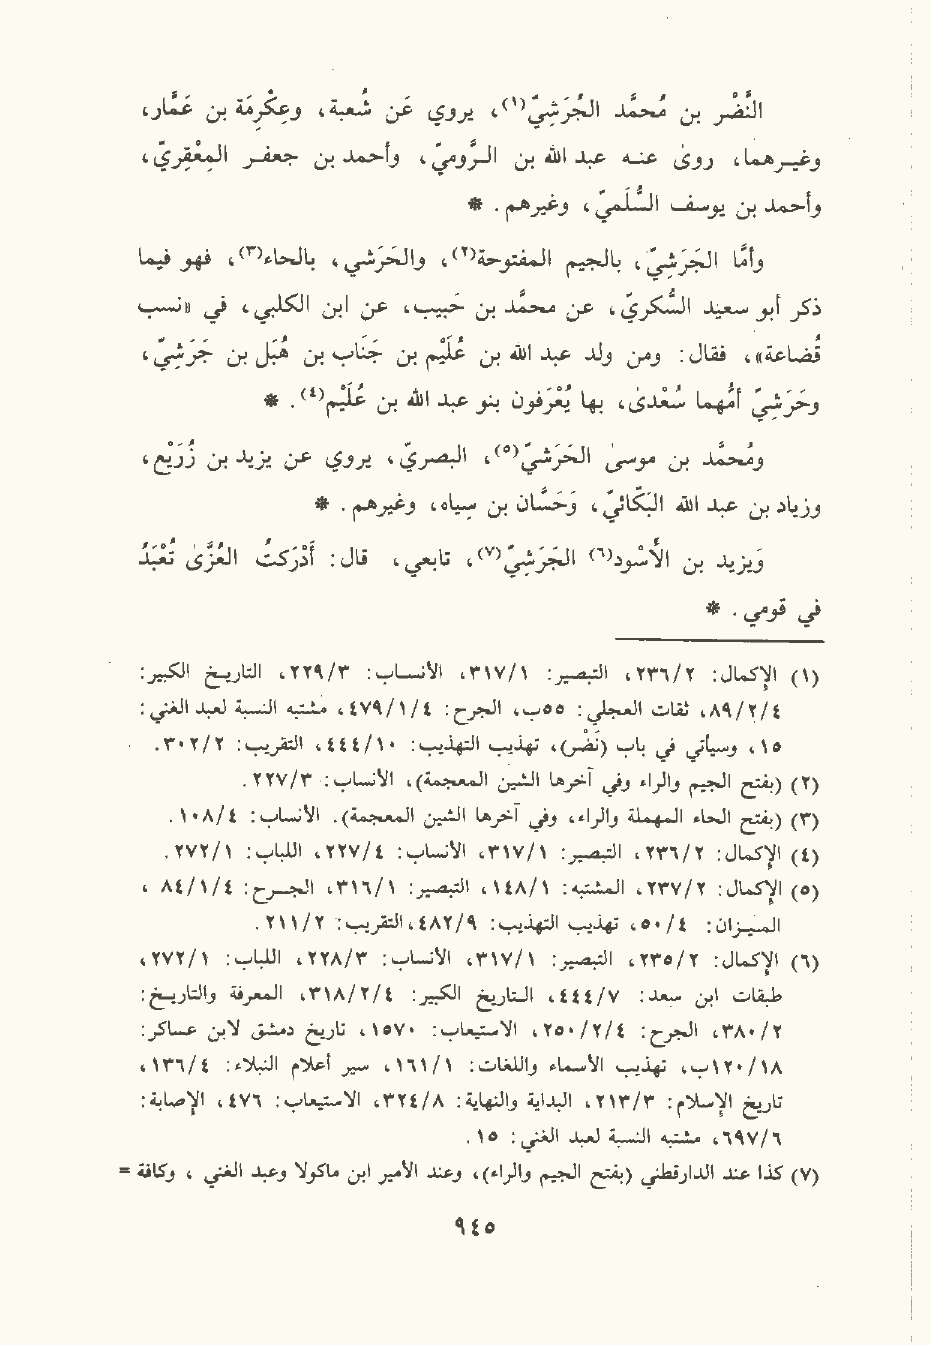 النَّضْر بن مُحمَّد الجُرَشِيّ(١)، يروي عَن شُعبَة، وعِكْرِمَة بن عَمَّار،
وغيرهما، روىٰ عنه عبد الله بن الرُّوميّ، وأحمد بن جعفر المَعْقِريّ،
وأحمد بن يوسف السُّلَميّ، وغيرهم. *
وأمَّا الجَرَشِيّ، بالجيم المفتوحة(٢)، والحَرَشي، بالحاء(٣)، فهو فيما
ذكر أبو سعيد السُّكريّ، عن محمَّد بن حَبيب، عن ابن الكلبي، في «نسب
قُضاعة»، فقال: ومن ولد عبد الله بن عُلَيْم بن جَنَاب بن هُبَل بن جَرَشِيّ،
وحَرَشِيّ أمّهما سُعْدىٰ، بها يُعْرَفون بنو عبد الله بن عُلَيْم(٤). *
ومُحمَّد بن موسىٰ الحَرَشيّ(٥)، البصريّ، يروي عن يزيد بن زُرَيْع،
وزياد بن عبد الله البَكّائيّ، وَحَسَّان بن سياه، وغيرهم. *
وَيزيد بن الأسْود(٦) الجَرَشِيّ(٧)، تابعي، قال: أدْرَكتُ العُزَّىٰ تُعْبَدُ
في قومي. *
(١) الإكمال: ٢٣٦/٢، التبصير: ٣١٧/١، الأنساب: ٢٢٩/٣، التاريخ الكبير:
٨٩/٢/٤، ثقات العجلي: ٥٥ب، الجرح: ٤٧٩/١/٤، مشتبه النسبة لعبد الغني:
١٥، وسيأتي في باب (نَضْر)، تهذيب التهذيب: ٤٤٤/١٠، التقريب: ٣٠٢/٢.
(٢) (بفتح الجيم والراء وفي آخرها الشين المعجمة)، الأنساب: ٢٢٧/٣.
(٣) (بفتح الحاء المهملة والراء، وفي آخرها الشين المعجمة). الأنساب: ١٠٨/٤.
(٤) الإكمال: ٢٣٦/٢، التبصير: ٣١٧/١، الأنساب: ٢٢٧/٤، اللباب: ٢٧٢/١.
(٥) الإكمال: ٢٣٧/٢، المشتبه: ١٤٨/١، التبصير: ٣١٦/١، الجرح: ٨٤/١/٤ ،
الميزان: ٥٠/٤، تهذيب التهذيب: ٤٨٢/٩، التقريب: ٢١١/٢.
(٦) الإكمال: ٢٣٥/٢، التبصير: ٣١٧/١، الأنساب: ٢٢٨/٣، اللباب: ٢٧٢/١،
طبقات ابن سعد: ٤٤٤/٧، التاريخ الكبير: ٣١٨/٢/٤، المعرفة والتاريخ:
٣٨٠/٢، الجرح: ٢٥٠/٢/٤، الاستيعاب: ١٥٧٠، تاريخ دمشق لابن عساكر:
١٢٠/١٨ب، تهذيب الأسماء واللغات: ١٦١/١، سير أعلام النبلاء: ١٣٦/٤،
تاريخ الإسلام: ٢١٣/٣، البداية والنهاية: ٣٢٤/٨، الاستيعاب: ٤٧٦، الإصابة:
٦٩٧/٦، مشتبه النسبة لعبد الغني: ١٥.
(٧) كذا عند الدارقطني (بفتح الجيم والراء)، وعند الأمير ابن ماكولا وعبد الغني ، وكافة =
٩٤٥